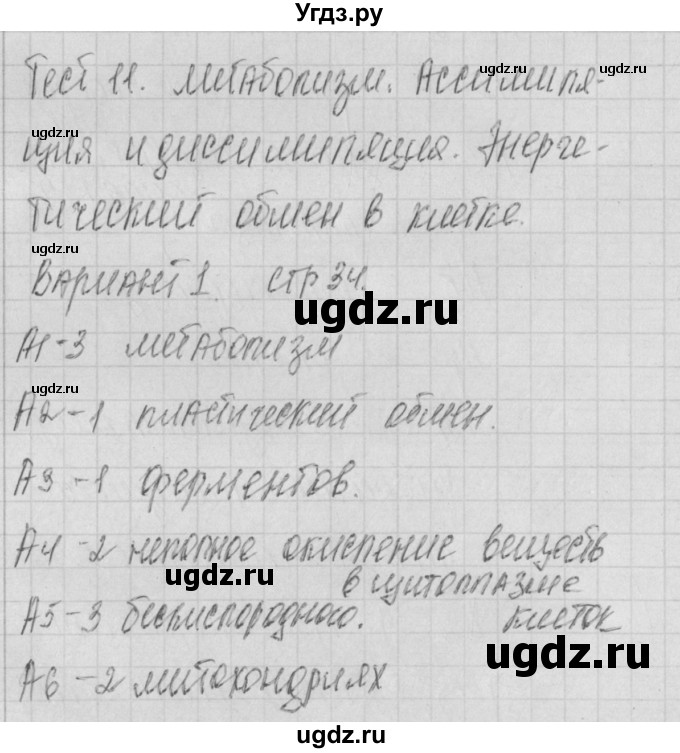 Угдз.ру
Тест 11. Метаболизм. Ассимиля-
ция и диссимиляция. Энерге-
тический обмен в клетке.
Вариант 1. стр 34.
А1-3 метаболизм
А2-1 пластический обмен.
А3-1 ферментов.
А4-2 неполное окисление веществ
в цитоплазме
А5-3 бескислородного. клеток
А6-2 митохондриях
ugdz.ru
ugdz.ru
ugdz.ru
ugdz.ru
ugdz.ru
ugdz.ru
ugdz.ru
ugdz.ru
ugdz.ru
ugdz.ru
ugdz.ru